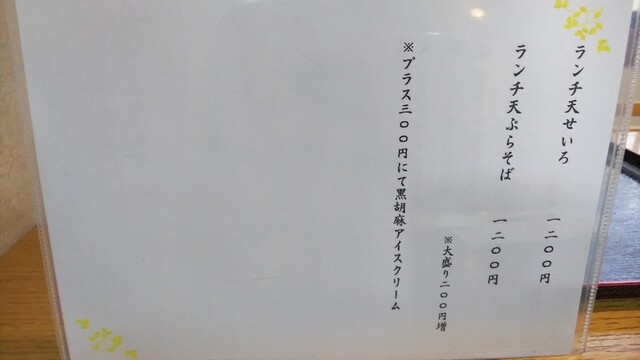 ランチ天せいろ 一二〇〇円
ランチ天ぷらそば 一二〇〇円
※大盛り二〇〇円増
※プラス三〇〇円にて黒胡麻アイスクリーム